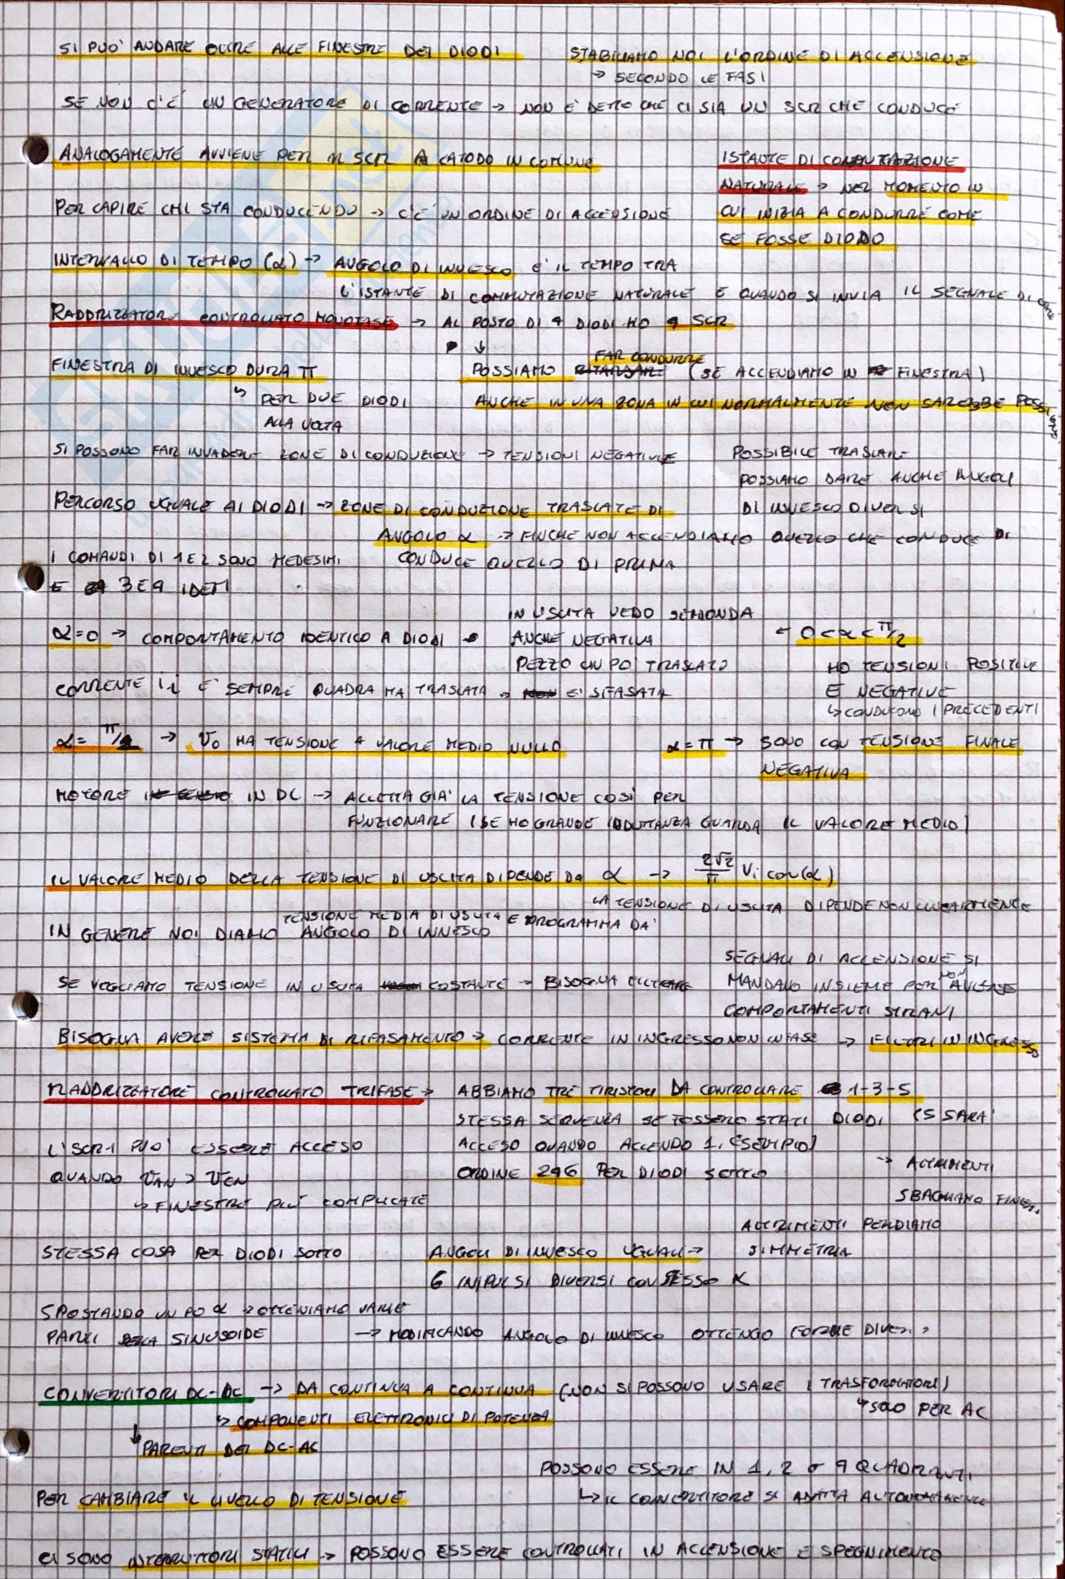 SI PUO' ANDARE OLTRE ALLE FINESTRE DEI DIODI
STABILIAMO NOI L'ORDINE DI ACCENSIONE
→ SECONDO LE FASI
SE NON C'È UN GENERATORE DI CORRENTE → NON E' DETTO CHE CI SIA UN SCR CHE CONDUCE
ANALOGAMENTE AVVIENE PER GLI SCR A CATODO IN COMUNE
ISTANTE DI COMMUTAZIONE
NATURALE → NEL MOMENTO IN
CUI INIZIA A CONDURRE COME
SE FOSSE DIODO
PER CAPIRE CHI STA CONDUCENDO → C'È UN ORDINE DI ACCENSIONE
INTERVALLO DI TEMPO (α) → ANGOLO DI INNESCO E' IL TEMPO TRA
L'ISTANTE DI COMMUTAZIONE NATURALE E QUANDO SI INVIA IL SEGNALE DI
RADDRIZZATORE CONTROLLATO MONOFASE → AL POSTO DI 4 DIODI HO 4 SCR
FINESTRA DI INNESCO DURA π
↳ PER DUE DIODI
ALLA VOLTA
POSSIAMO FAR CONDURRE (SE ACCENDIAMO IN FINESTRA)
ANCHE IN UNA ZONA IN CUI NORMALMENTE NON SAREBBE POSSIBILE
SI POSSONO FAR INVADERE ZONE DI CONDUZIONE → TENSIONI NEGATIVE
POSSIBILE TRASLARE
POSSIAMO DARE ANCHE ANGOLI
DI INNESCO DIVERSI
PERCORSO UGUALE AI DIODI → ZONE DI CONDUZIONE TRASLATE DI
ANGOLO α → FINCHE NON ACCENDIAMO QUELLO CHE CONDUCE DI
CONDUCE QUELLO DI PRIMA
I COMANDI DI 1 E 2 SONO MEDESIMI
E 3 E 4 IDEM
α=0 → COMPORTAMENTO IDENTICO A DIODI
IN USCITA VEDO SEMIONDA
ANCHE NEGATIVA
PEZZO UN PO' TRASLATO
← 0<α<π/2
HO TENSIONI POSITIVE
E NEGATIVE
↳ CONDUCONO I PRECEDENTI
CORRENTE i_i E' SEMPRE QUADRA MA TRASLATA → E' SFASATA
α= π/2 → V₀ HA TENSIONE A VALORE MEDIO NULLO
α=π → SONO CON TENSIONE FINALE
NEGATIVA
MOTORE IN DC → ACCETTA GIA' LA TENSIONE COSÌ PER
FUNZIONARE (SE HO GRANDE INDUTTANZA GUARDA IL VALORE MEDIO)
IL VALORE MEDIO DELLA TENSIONE DI USCITA DIPENDE DA α → 2√2/π Vi cos(α)
LA TENSIONE DI USCITA DIPENDE NON LINEARMENTE
IN GENERE NOI DIAMO TENSIONE MEDIA DI USCITA E PROGRAMMA DA'
ANGOLO DI INNESCO
SE VOGLIAMO TENSIONE IN USCITA COSTANTE → BISOGNA FILTRARE
SEGNALI DI ACCENSIONE SI
MANDANO INSIEME PER NON AVERE
COMPORTAMENTI STRANI
BISOGNA AVERE SISTEMA DI RIFASAMENTO → CORRENTE IN INGRESSO NON IN FASE → FILTRI IN INGRESSO
RADDRIZZATORE CONTROLLATO TRIFASE → ABBIAMO TRE TIRISTORI DA CONTROLLARE 1-3-5
STESSA SEQUENZA SE FOSSERO STATI DIODI (5 SARA'
ACCESO QUANDO ACCENDO 1, ESEMPIO)
ORDINE 246 PER DIODI SOTTO
L'SCR1 PUO' ESSERE ACCESO
QUANDO VAN > VCN
↳ FINESTRE PIU' COMPLICATE
→ ALTRIMENTI
SBAGLIAMO FINES.
STESSA COSA PER DIODI SOTTO
ANGOLI DI INNESCO UGUALI →
ALTRIMENTI PERDIAMO
SIMMETRIA
6 IMPULSI DIVERSI CON STESSO α
SPOSTANDO UN PO α OTTENIAMO VARIE
PARTI SINUSOIDE
→ MODIFICANDO ANGOLO DI INNESCO OTTENGO FORME DIVERSE
CONVERTITORI DC-DC → DA CONTINUA A CONTINUA (NON SI POSSONO USARE I TRASFORMATORI)
↳ SOLO PER AC
↳ COMPONENTI ELETTRONICI DI POTENZA
↓ PARENTI DEI DC-AC
POSSONO ESSERE IN 1, 2 o 4 QUADRANTI
↳ IL CONVERTITORE SI ADATTA AUTONOMAMENTE
PER CAMBIARE IL LIVELLO DI TENSIONE
CI SONO INTERRUTTORI STATICI → POSSONO ESSERE CONTROLLATI IN ACCENSIONE E SPEGNIMENTO